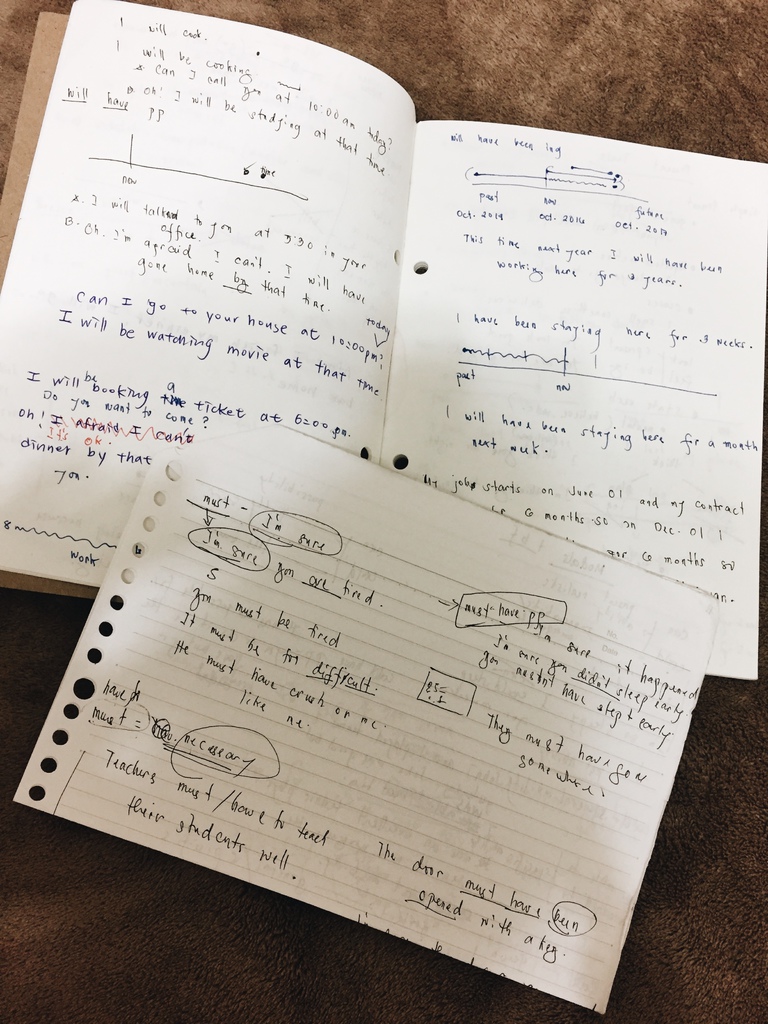 I will cook.
I will be cooking
A. Can I call you at 10:00am today?
B. Oh! I will be studying at that time.
will have pp
now
time
A. I will talk to you at 5:30 in your
office.
B. Oh. I'm agraid I can't. I will have
gone home by that time.
today
Can I go to your house at 10:00pm?
I will be watching movie at that time
be a
I will booking the ticket at 6:00 pm.
Do you want to come?
Oh! I afraid I can't
It's ok.
dinner by that
you.
8
work
will have been ing
past now future
Oct. 2014 Oct. 2016 Oct. 2017
This time next year, I will have been
working here for 3 years.
I have been staying here for 3 weeks.
past now
I will have been staying here for a month
next week.
My job starts on June 01 and my contract
6 months so on Dec. 01 I
for 6 months so
must - I'm sure
I'm sure you are tired.
S
you must be tired
It must be for difficult.
He must have crush on me.
like me.
have to
must = necessary
Teachers must/have to teach
their students well.
must have pp
I'm sure it happened
I'm sure you didn't sleep early.
you mustn't have slept early.
They must have gon
somewhere
The door must have been
opened with a key.